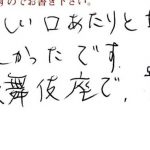 すのでお書き下さい。
しい口あたりと
かったです。
舞伎座で、